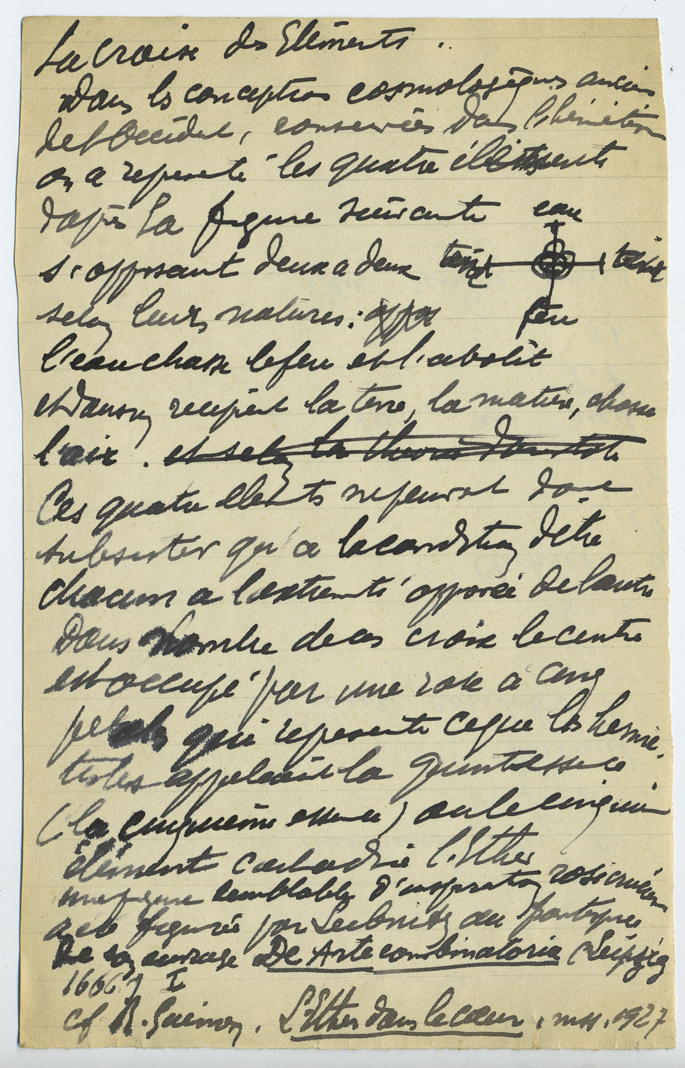 La croix des Eléments.
Dans les conceptions cosmologiques ancien
de l'Occident, conservées dans l'hermétism
on a représenté les quatre éléments
d'après la figure suivante eau
s'opposant deux à deux
selon leurs natures: feu
l'eau chasse le feu et l'abolit
et dans un récipient la terre, la matière, chasse
l'air. et selon la théorie d'Aristote
Ces quatre éléments ne peuvent donc
subsister qu'à la condition d'être
chacun à l'extrémité opposée de l'autre
Dans nombre de ces croix le centre
est occupé par une rose à cinq
pétales qui représente ce que les hermé-
tistes appelaient la quintessence
(la cinquième essence) ou le cinquièm
élément c'est à dire l'Ether
une figure semblable d'inspiration rosicrucien
a été figurée par Leibnitz au frontispice
de son ouvrage De Arte combinatoria (Leipzig
1666) I
cf R. Guénon. L'Ether dans le cœur, mss. 1927